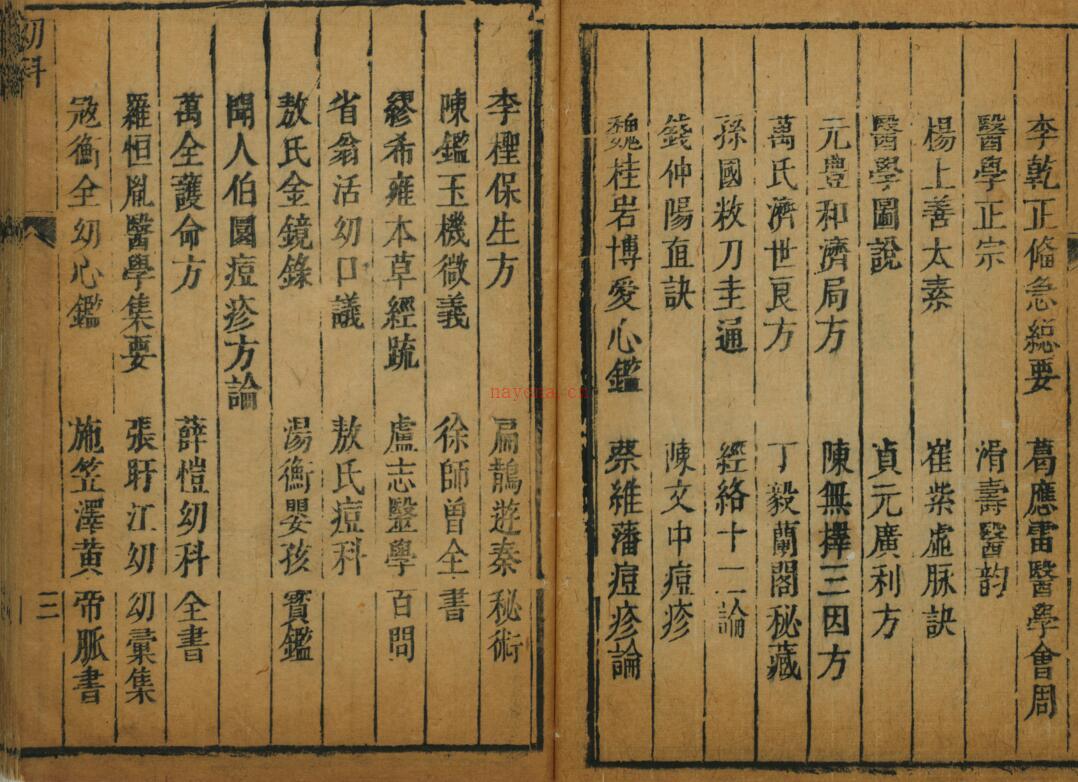 李乾正備急總要 葛應雷醫學會周
醫學正宗 滑壽醫韵
楊上善太素 崔紫虛脉訣
醫學圖說 貞元廣利方
元豊和濟局方 陳無擇三因方
萬氏濟世良方 丁毅蘭閣秘藏
孫國敉刀圭通 經絡十二論
錢仲陽直訣 陳文中痘疹
魏桂岩博愛心鑑 蔡維藩痘疹論
李檉保生方 扁鵲遊秦秘術
陳鑑玉機微義 徐師曾全書
繆希雍本草經疏 盧志醫學百問
省翁活幼口議 敖氏痘科
敖氏金鏡錄 湯衡嬰孩寳鑑
聞人伯圜痘疹方論
萬全護命方 薛愷幼科全書
羅恒胤醫學集要 張盱江幼幼彙集
冦衡全幼心鑑 施笠澤黄帝脈書
幼科
三
nayona.cn